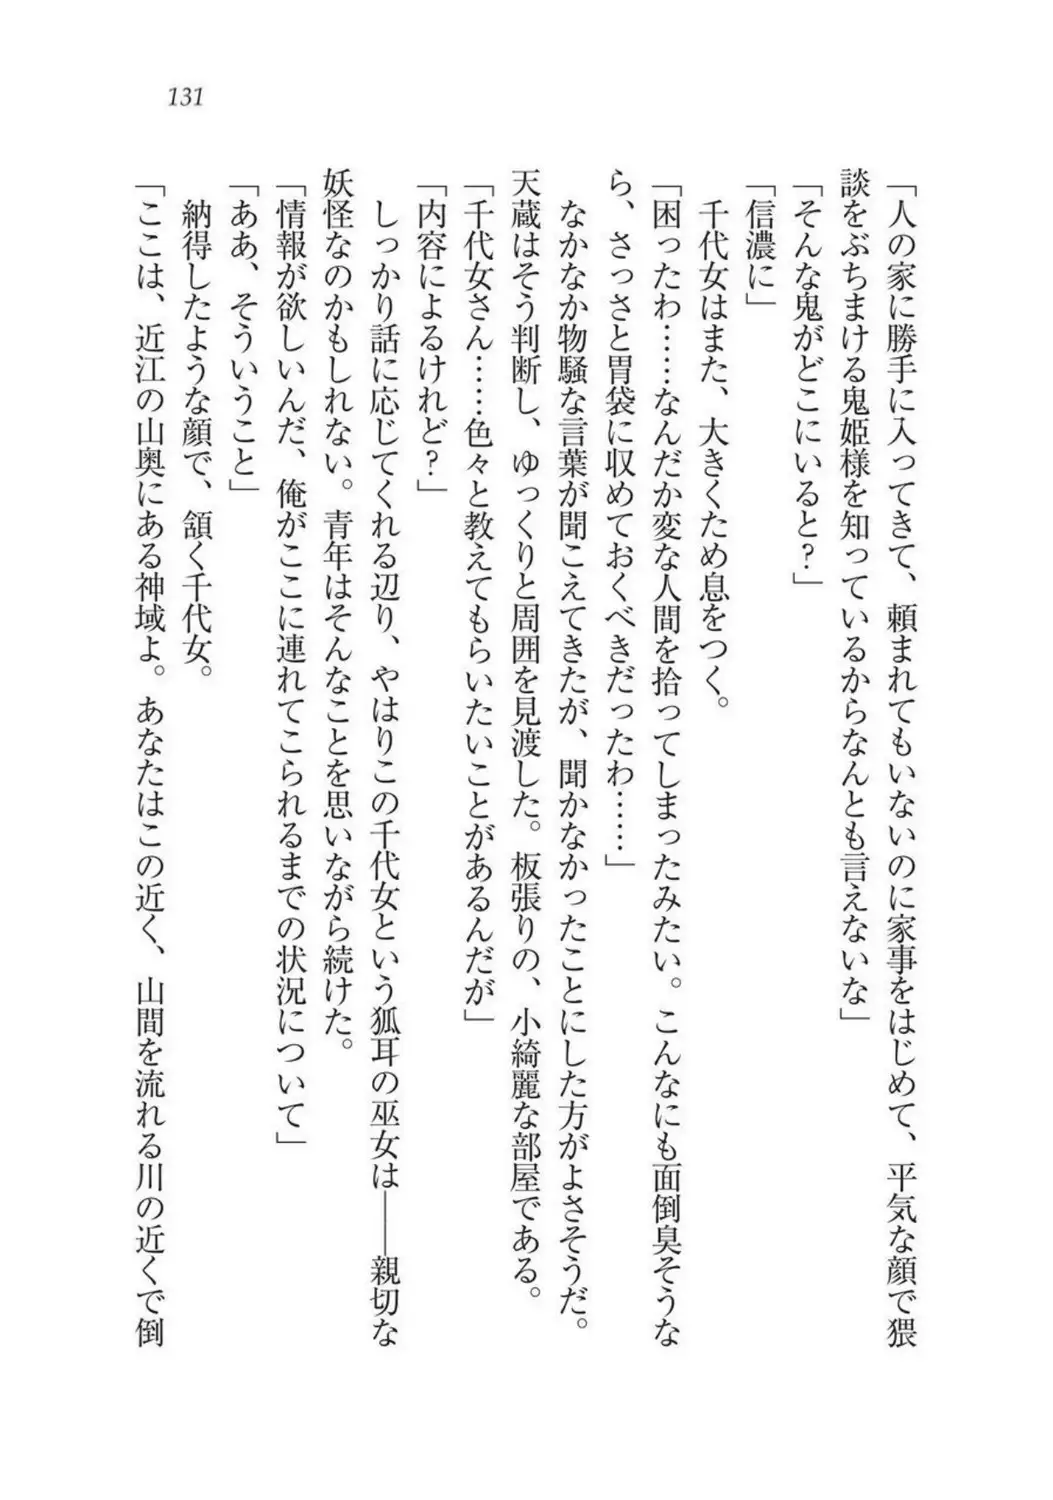 131
「人の家に勝手に入ってきて、頼まれてもいないのに家事をはじめて、平気な顔で猥
談をぶちまける鬼姫様を知っているからなんとも言えないな」
「そんな鬼がどこにいると?」
「信濃に」
　千代女はまた、大きくため息をつく。
「困ったわ……なんだか変な人間を拾ってしまったみたい。こんなにも面倒臭そうな
ら、さっさと胃袋に収めておくべきだったわ……」
　なかなか物騒な言葉が聞こえてきたが、聞かなかったことにした方がよさそうだ。
天蔵はそう判断し、ゆっくりと周囲を見渡した。板張りの、小綺麗な部屋である。
「千代女さん……色々と教えてもらいたいことがあるんだが」
「内容によるけれど?」
　しっかり話に応じてくれる辺り、やはりこの千代女という狐耳の巫女は――親切な
妖怪なのかもしれない。青年はそんなことを思いながら続けた。
「情報が欲しいんだ、俺がここに連れてこられるまでの状況について」
「ああ、そういうこと」
　納得したような顔で、頷く千代女。
「ここは、近江の山奥にある神域よ。あなたはこの近く、山間を流れる川の近くで倒